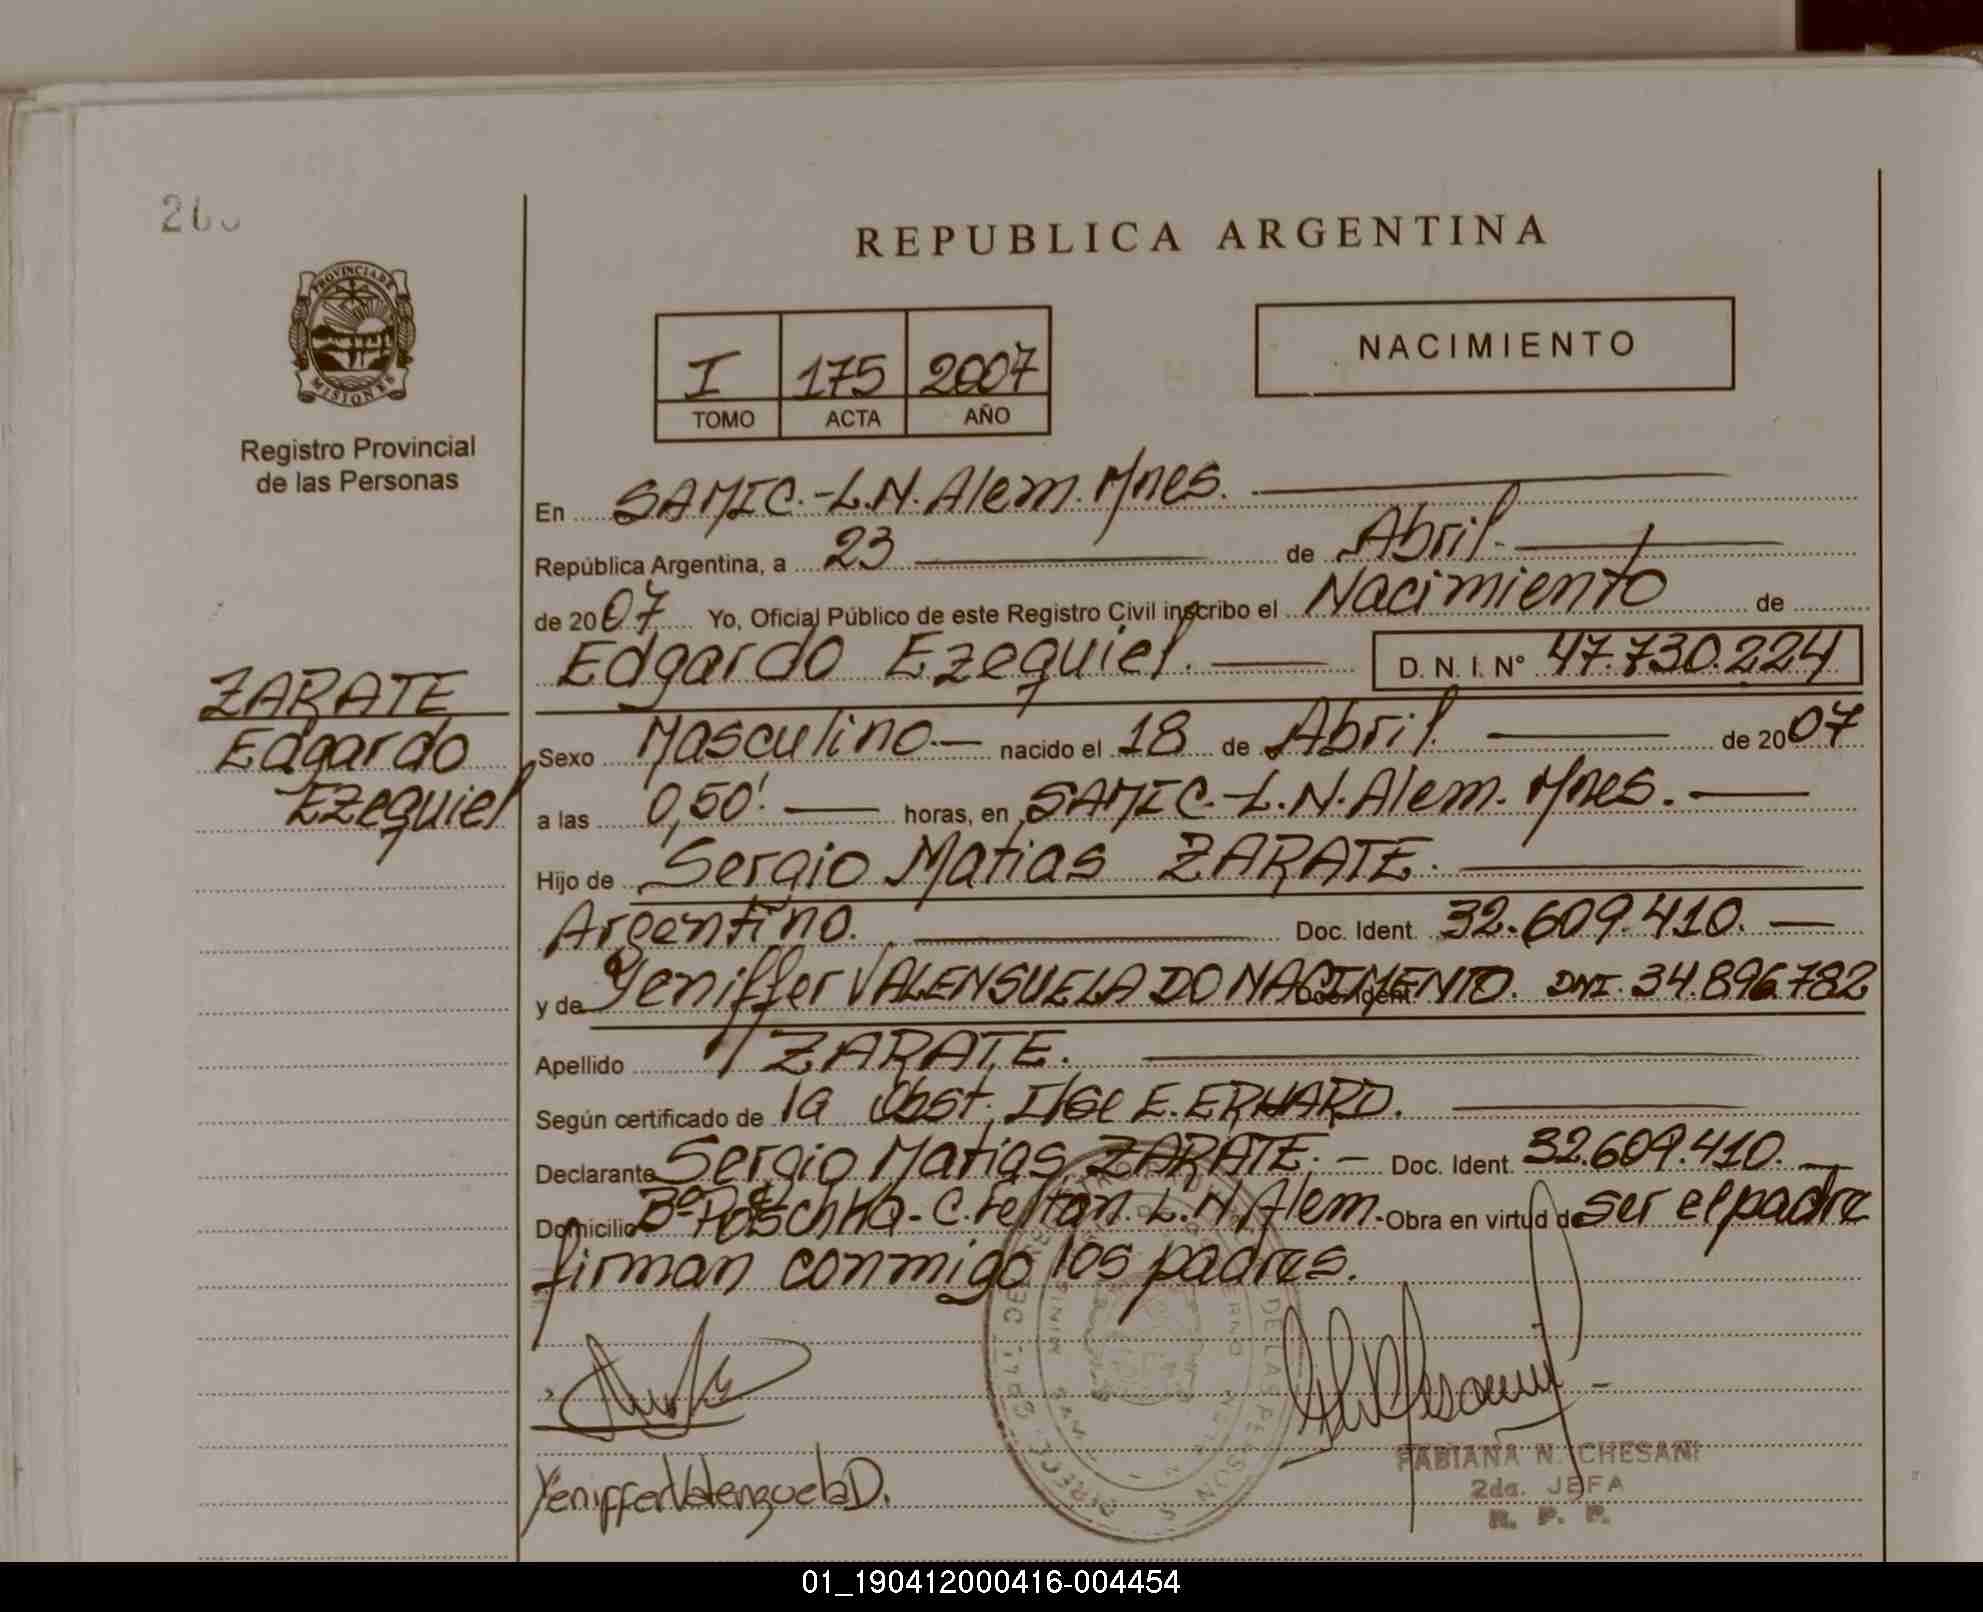 REPUBLICA ARGENTINA
PROVINCIA DE
MISIONES
Registro Provincial
de las Personas
I 175 2007
TOMO ACTA AÑO
NACIMIENTO
En SAMIC.-L.N.Alem.Mnes.
República Argentina, a 23 de Abril.
de 2007 Yo, Oficial Público de este Registro Civil inscribo el Nacimiento de
Edgardo Ezequiel. D. N. I. N° 47.730.224
ZARATE
Edgardo
Ezequiel
Sexo Masculino.- nacido el 18 de Abril. de 2007
a las 0,50'. horas, en SAMIC.-L.N.Alem.Mnes.
Hijo de Sergio Matias ZARATE.
Argentino. Doc. Ident. 32.609.410.
y de Yeniffer VALENSUELA DO NACIMENTO. DNI. 34.896.782
Apellido ZARATE.
Según certificado de la Obst. Ilse E. ERHARD.
Declarante Sergio Matias ZARATE. - Doc. Ident. 32.609.410.
Domicilio Bº - C. L.N.Alem. Obra en virtud de ser el padre
firman conmigo los padres.
Yeniffer Valenzuela D.
FABIANA N. CHESANI
2da. JEFA
R. P. P.
01_190412000416-004454